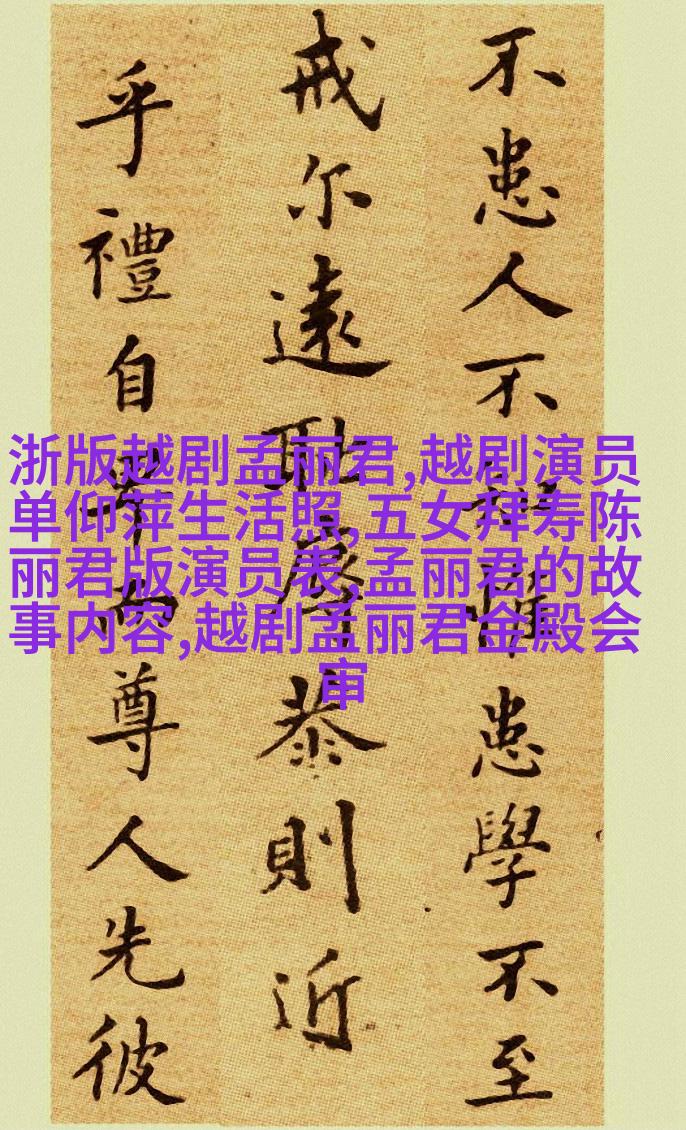 不患人不知惟患學不至
戒尔遠耻辱恭則近
乎禮自卑而尊人先彼
浙版越剧孟丽君,越剧演员
单仰萍生活照,五女拜寿陈
丽君版演员表,孟丽君的故
事内容,越剧孟丽君金殿会
审